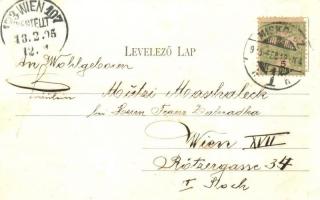 18/2 WIEN 107
BESTELLT
13.2.05
12.
LEVELEZŐ LAP
An Wohlgeboren
Fräulein Mitzi Mastraleck
bei Herrn Franz Zahradka
Wien XVII
Rötzergasse 34
I Stock